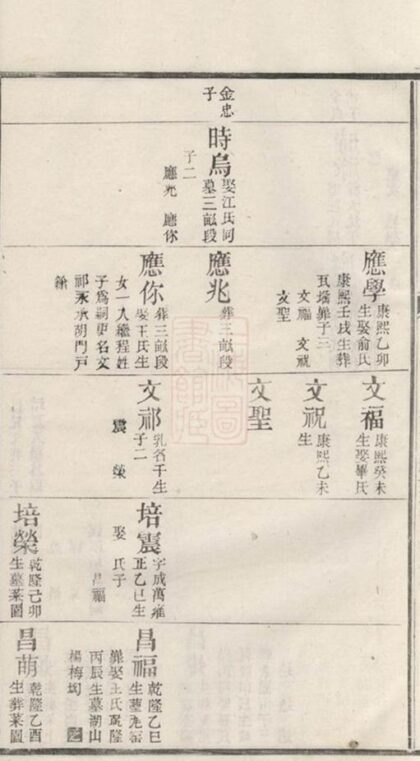 金忠
子
時烏
娶江氏同
墓三畝段
子二
應兆 應你
應學
康熙乙卯
生娶俞氏
康熙壬戌生葬
文福 文祝
文聖
應兆
葬三畝段
應你
葬三畝段
娶王氏生
女一人繼程姓
子為嗣更名文
祁永承胡門戶
文福
康熙癸未
生娶畢氏
文祝
康熙乙未
生
文聖
文祁
乳名千生
子二
震 榮
培震
字成萬雍
正乙巳生
娶 氏子
昌福
培榮
乾隆己卯
生墓葉園
昌福
乾隆乙巳
丙辰生墓湖山
楊梅坞
昌萌
乾隆乙酉
生葬葉園